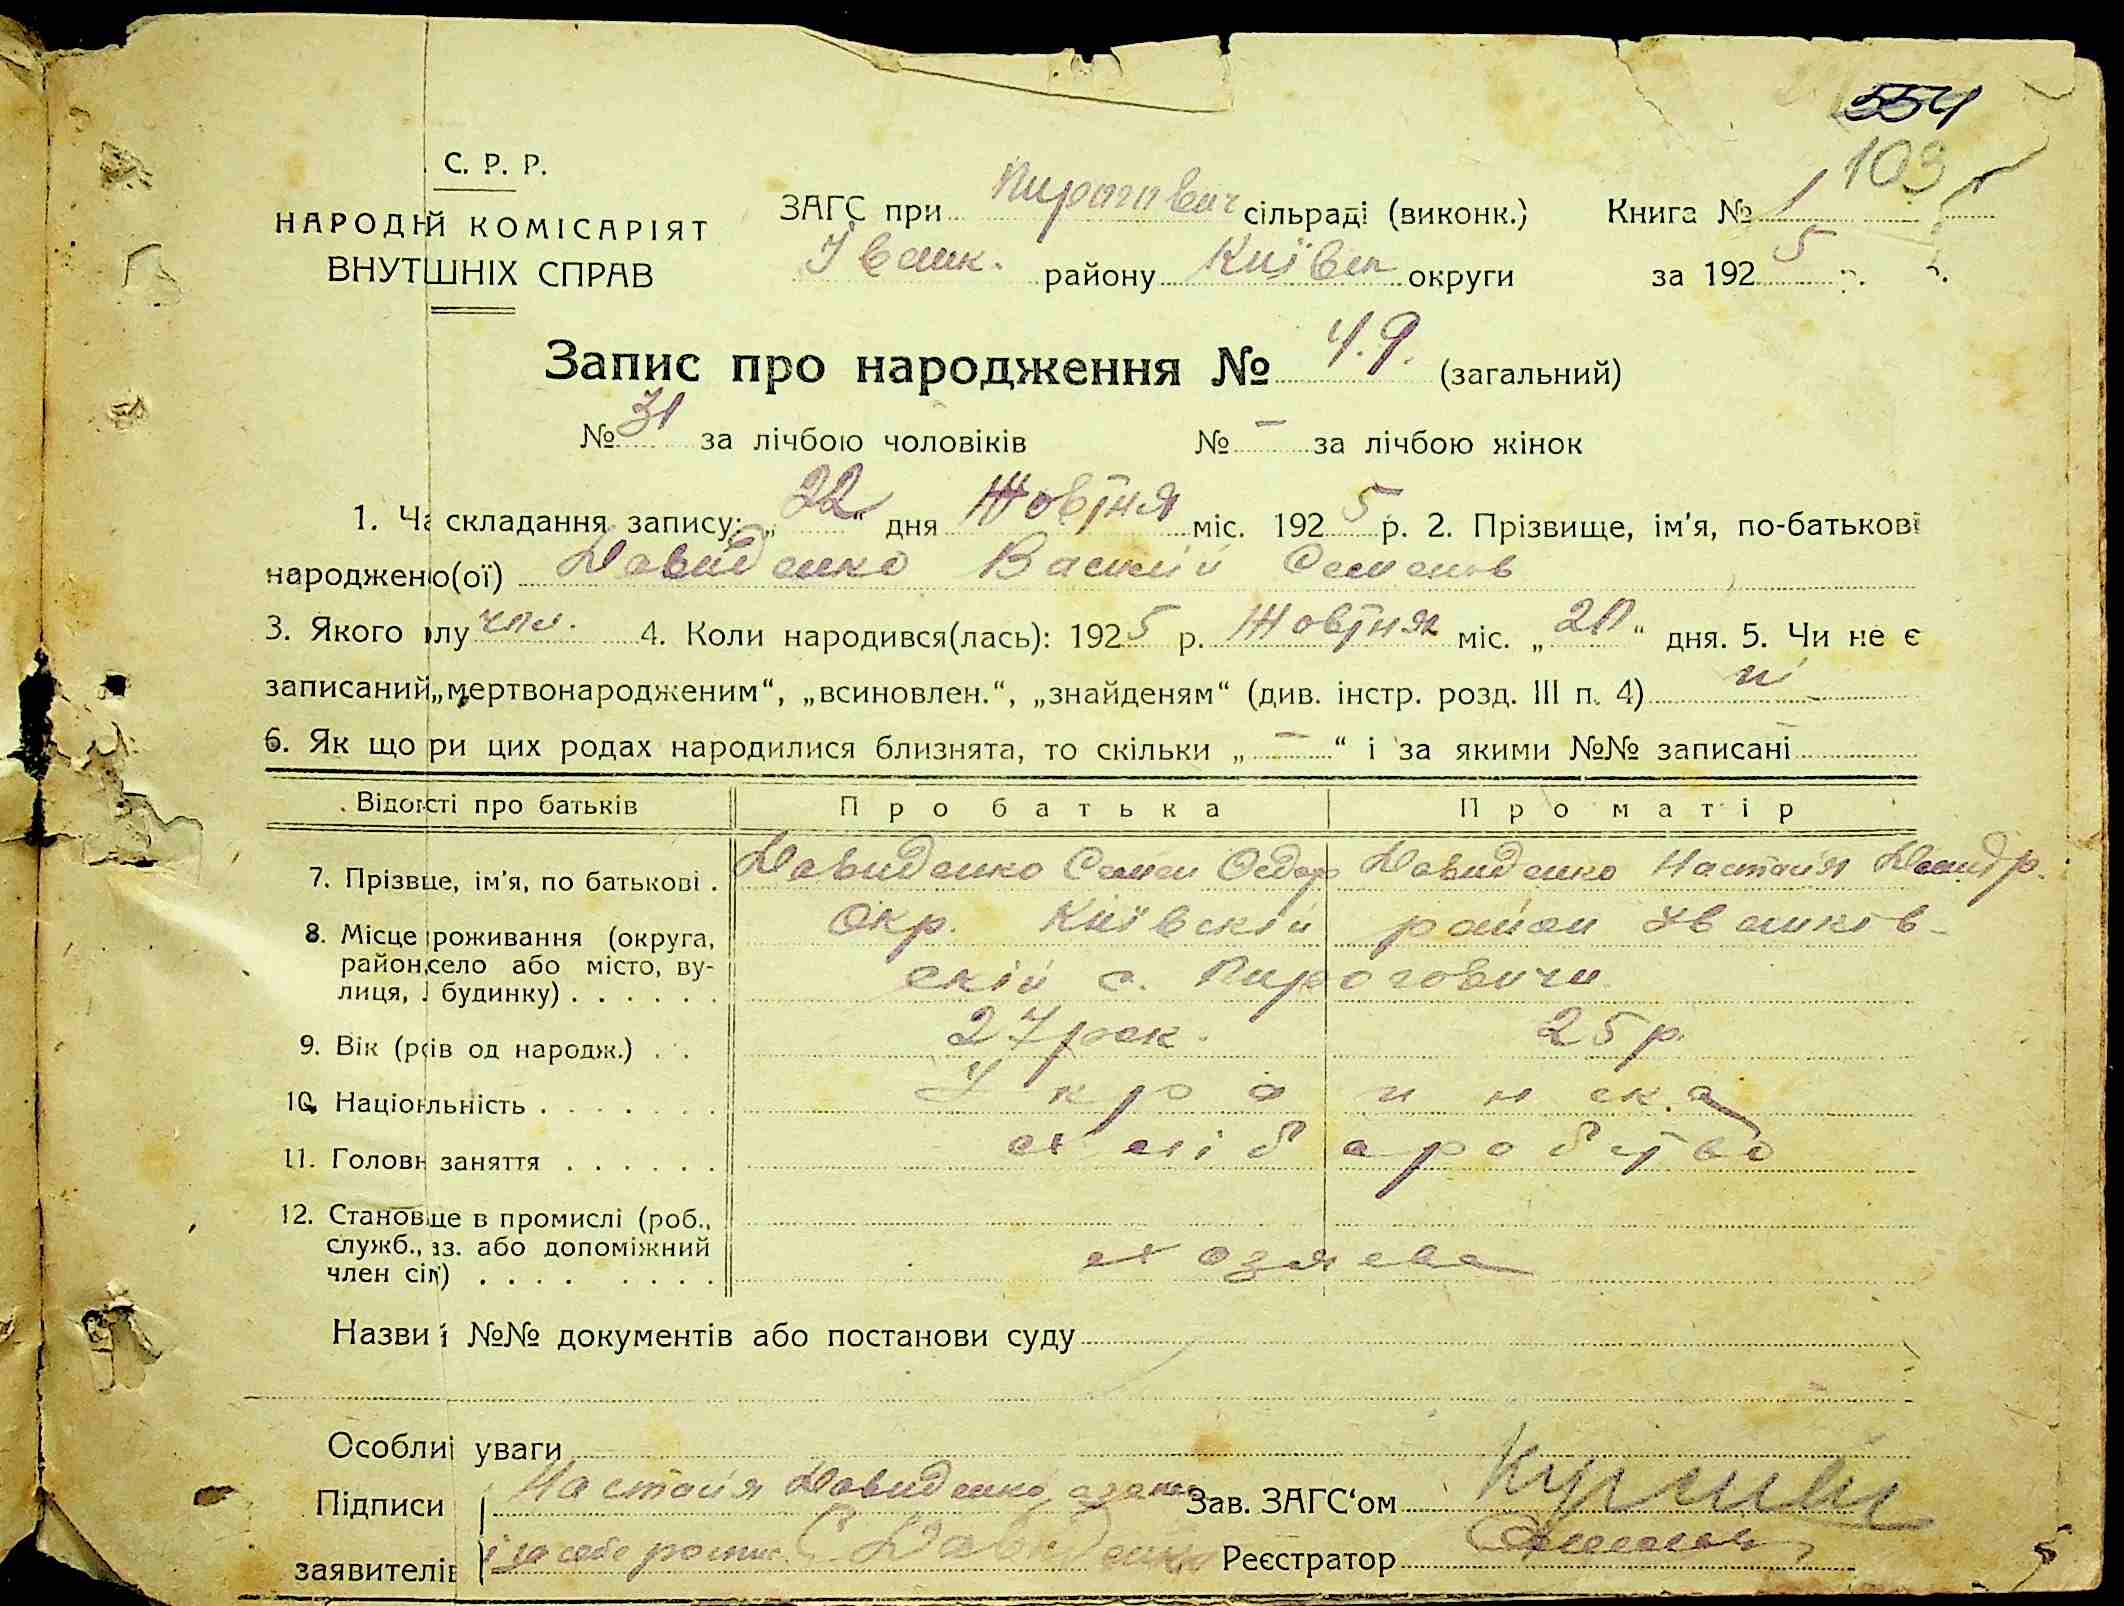 554
103
С. Р. Р.
НАРОДНІЙ КОМІСАРІЯТ
ВНУТШНІХ СПРАВ
ЗАГС при Пирогович сільраді (виконк.) Книга № 1
Іванк. району Київск округи за 1925 р.
Запис про народження № 49. (загальний)
№ 31 за лічбою чоловіків № – за лічбою жінок
1. Ча складання запису: „22“ дня Жовтня міс. 1925 р. 2. Прізвище, ім'я, по-батькові
народжено(ої) Давиденко Василій Семенов
3. Якого лу чол. 4. Коли народився(лась): 1925 р. Жовтня міс. „20“ дня. 5. Чи не є
записаний „мертвонародженим“, „всиновлен.“, „знайденям“ (див. інстр. розд. III п. 4) ні
6. Як що ри цих родах народилися близнята, то скільки „–“ і за якими №№ записані
Відомсті про батьків Про батька Про матір
7. Прізвще, ім'я, по батькові . Давиденко Семен Федор Давиденко Настасія Дмитр.
8. Місце роживання (округа, Окр. Київскій район Іванків-
район, село або місто, ву- скій с. Пироговичи
лиця, будинку) . . . . . .
9. Вік (рсів од народж.) . . 27 рок. 25 р.
10. Націонльність . . . . . . . Украинска
11. Головн заняття . . . . . . хліборобство
12. Становще в промислі (роб.,
служб., аз. або допоміжний хозяева
член сім) . . . . . . . .
Назви і №№ документів або постанови суду
Особлиі уваги
Підписи Настасія Давиденко Зав. ЗАГС'ом
заявителів і за себе С Давиденко Реєстратор